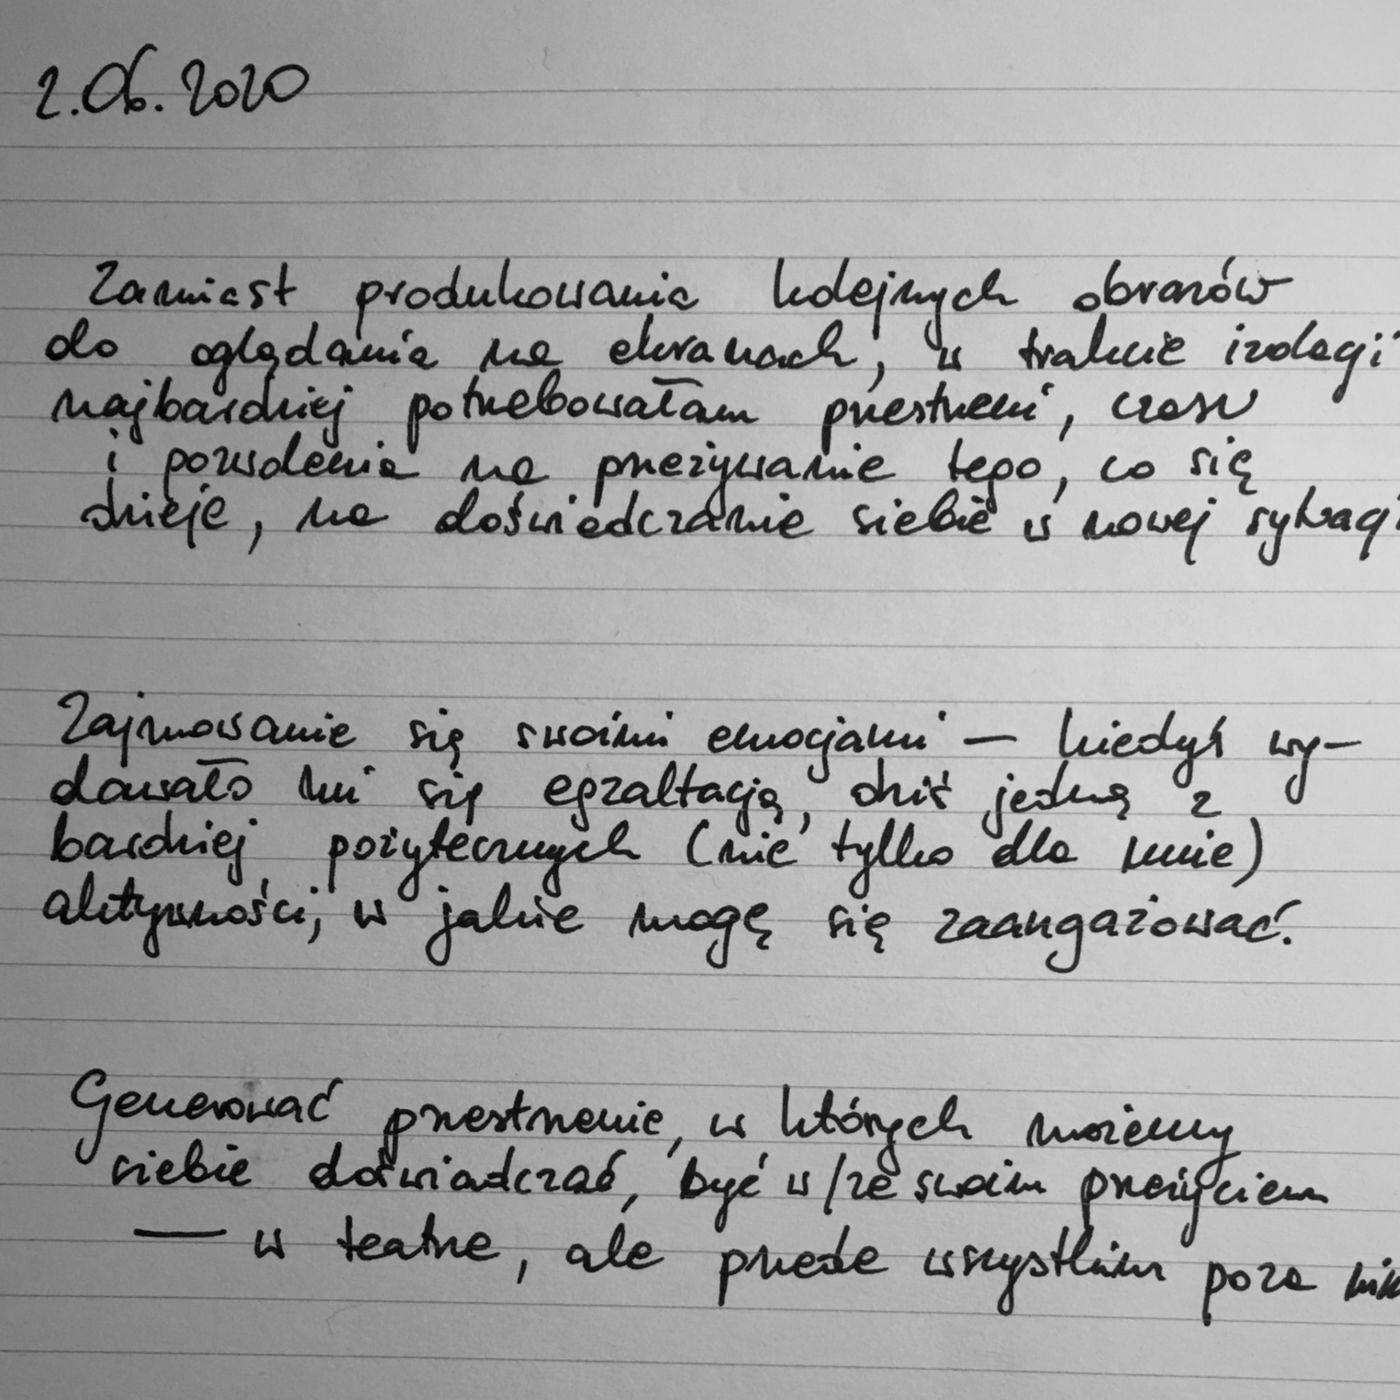 2.06.2020
Zamiast produkowania kolejnych obrazów
do oglądania na ekranach, w trakcie izolacji
najbardziej potrzebowałam przestrzeni, czasu
i pozwolenia na przeżywanie tego, co się
dzieje, na doświadczanie siebie w nowej sytuacji
Zajmowanie się swoimi emocjami — kiedyś wy-
dawało mi się egzaltacją, dziś jedną z
bardziej pożytecznych (nie tylko dla mnie)
aktywności, w jakie mogę się zaangażować.
Generować przestrzenie, w których możemy
siebie doświadczać, być w/ze swoim przeżyciem
— w teatrze, ale przede wszystkim poza